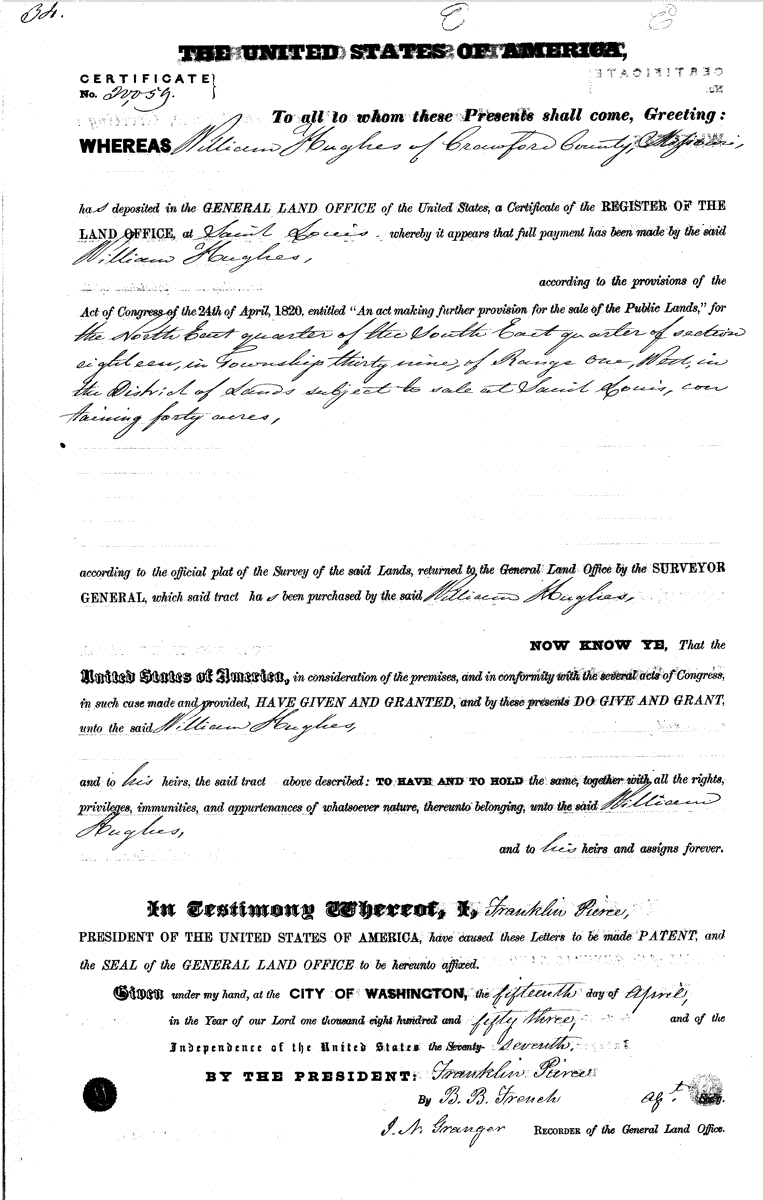 34.
THE UNITED STATES OF AMERICA,
CERTIFICATE
No. 20,059.
To all to whom these Presents shall come, Greeting:
WHEREAS William Hughes of Crawford County, Missouri,
has deposited in the GENERAL LAND OFFICE of the United States, a Certificate of the REGISTER OF THE
LAND OFFICE, at Saint Louis. whereby it appears that full payment has been made by the said
William Hughes,
according to the provisions of the
Act of Congress of the 24th of April, 1820, entitled "An act making further provision for the sale of the Public Lands," for
the North East quarter of the South East quarter of section
eighteen, in Township thirty nine, of Range One, West, in
the District of Lands subject to sale at Saint Louis, con
taining forty acres,
according to the official plat of the Survey of the said Lands, returned to the General Land Office by the SURVEYOR
GENERAL, which said tract has been purchased by the said William Hughes,
NOW KNOW YE, That the
United States of America, in consideration of the premises, and in conformity with the several acts of Congress,
in such case made and provided, HAVE GIVEN AND GRANTED, and by these presents DO GIVE AND GRANT,
unto the said William Hughes,
and to his heirs, the said tract above described: TO HAVE AND TO HOLD the same, together with all the rights,
privileges, immunities, and appurtenances of whatsoever nature, thereunto belonging, unto the said William
Hughes,
and to his heirs and assigns forever.
In Testimony Whereof, I, Franklin Pierce,
PRESIDENT OF THE UNITED STATES OF AMERICA, have caused these Letters to be made PATENT, and
the SEAL of the GENERAL LAND OFFICE to be hereunto affixed.
Given under my hand, at the CITY OF WASHINGTON, the fifteenth day of April,
in the Year of our Lord one thousand eight hundred and fifty three, and of the
Independence of the United States the Seventy-seventh.
BY THE PRESIDENT: Franklin Pierce
By B. B. French Asst. Sec'y.
J. N. Granger RECORDER of the General Land Office.